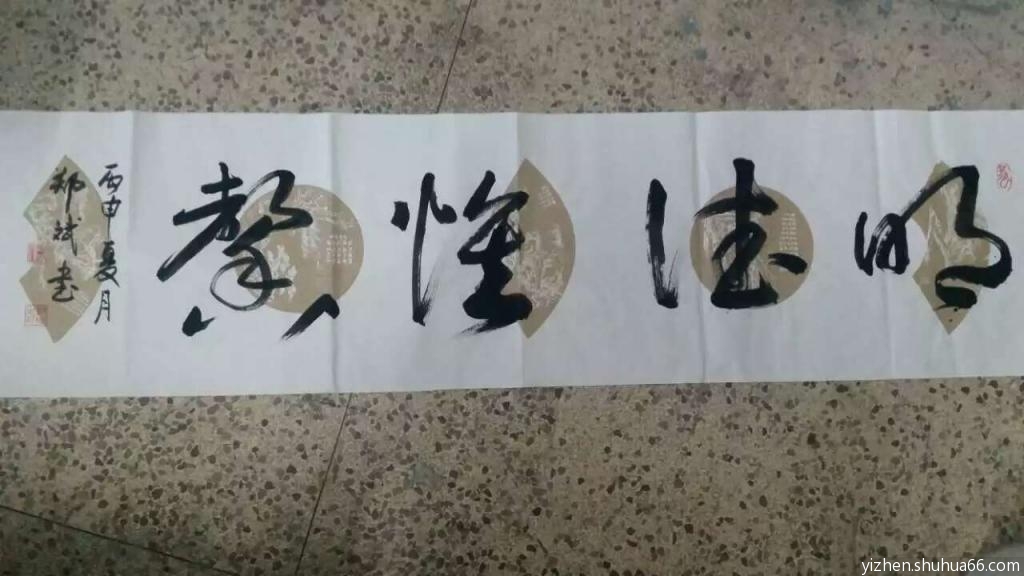 明德惟馨
丙申夏月
郑斌书
yizhen.shuhua66.com